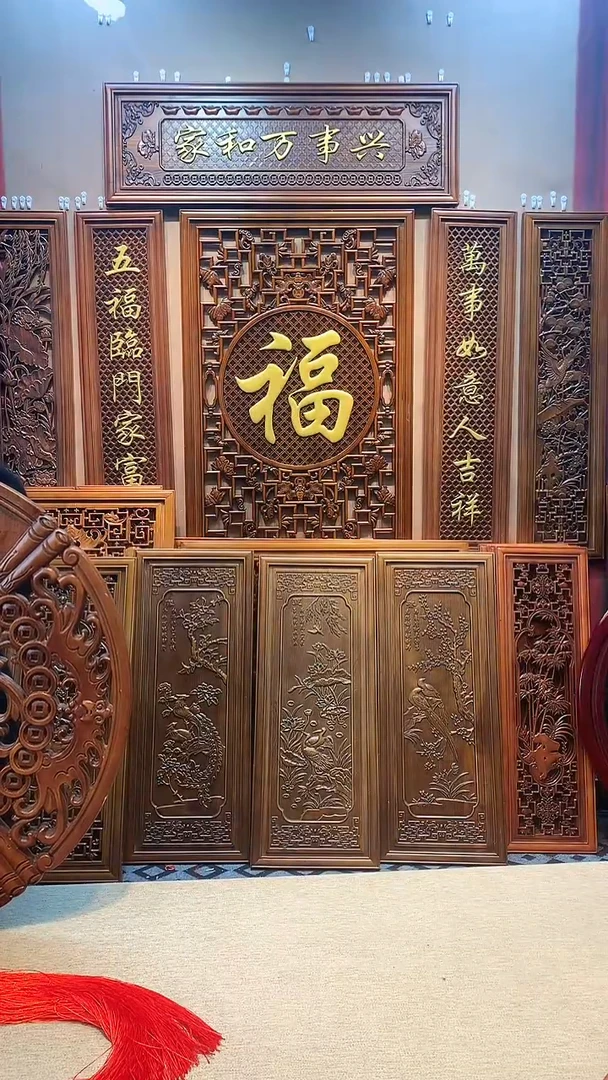 家和万事兴
五福臨門家富
福
萬事如意人吉祥